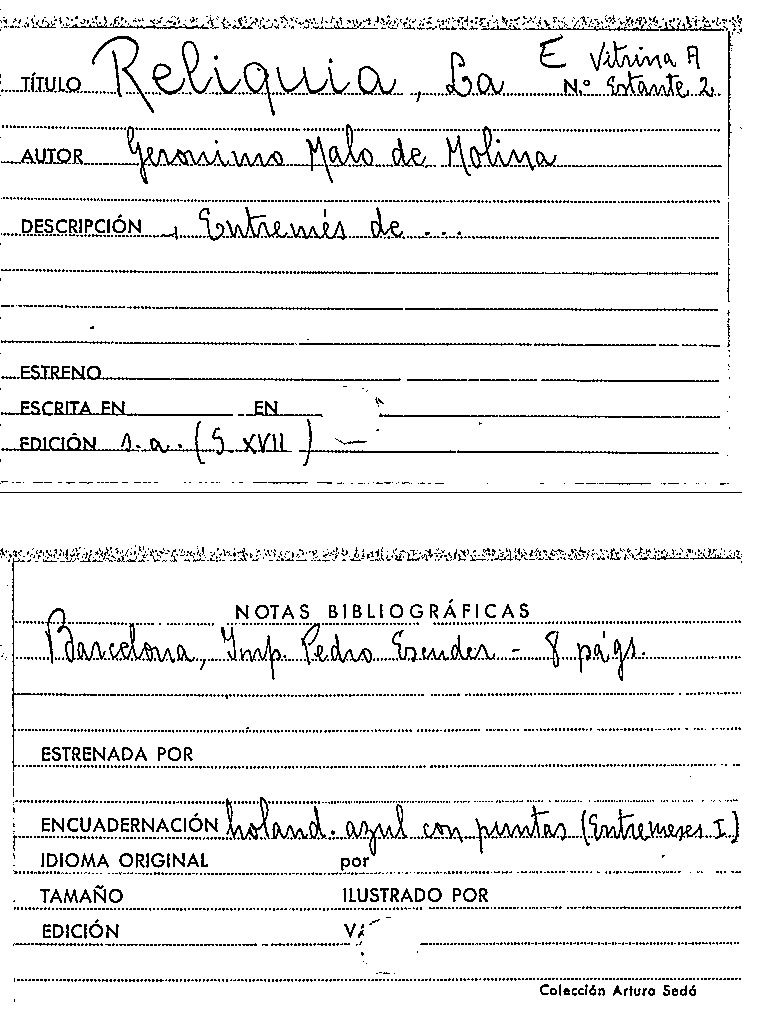 TÍTULO Reliquia, La E Vitrina A
N.º Estante 2
AUTOR Geronimo Malo de Molina
DESCRIPCIÓN , Entremés de ...
ESTRENO
ESCRITA EN EN
EDICIÓN s.a. (S XVII) —
NOTAS BIBLIOGRÁFICAS
Barcelona, Imp. Pedro Escuder - 8 págs.
ESTRENADA POR
ENCUADERNACIÓN holand. azul con puntas (Entremeses I)
IDIOMA ORIGINAL por
TAMAÑO ILUSTRADO POR
EDICIÓN
Colección Arturo Sedó